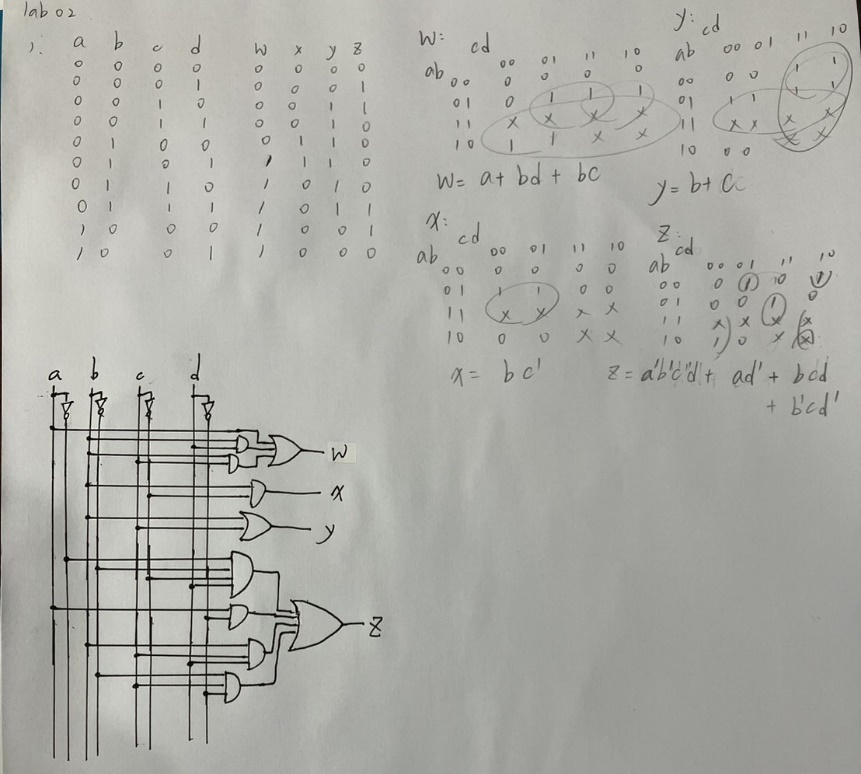 lab 02
1.
a b c d w x y z
0 0 0 0 0 0 0 0
0 0 0 1 0 0 0 1
0 0 1 0 0 0 1 1
0 0 1 1 0 0 1 0
0 1 0 0 0 1 1 0
0 1 0 1 1 1 1 0
0 1 1 0 1 0 1 0
0 1 1 1 1 0 1 1
1 0 0 0 1 0 0 1
1 0 0 1 1 0 0 0
W: cd
ab 00 01 11 10
00 0 0 0 0
01 0 1 1 1
11 x x x x
10 1 1 x x
W = a + bd + bc
y: cd
ab 00 01 11 10
00 0 0 1 1
01 1 1 1 1
11 x x x x
10 0 0 x x
y = b + c
x: cd
ab 00 01 11 10
00 0 0 0 0
01 1 1 0 0
11 x x x x
10 0 0 x x
x = b c'
Z: cd
ab 00 01 11 10
00 0 1 0 1
01 0 0 1 0
11 x x x x
10 1 0 x x
Z = a'b'c'd + ad' + bcd
+ b'cd'
a b c d
W
x
y
Z